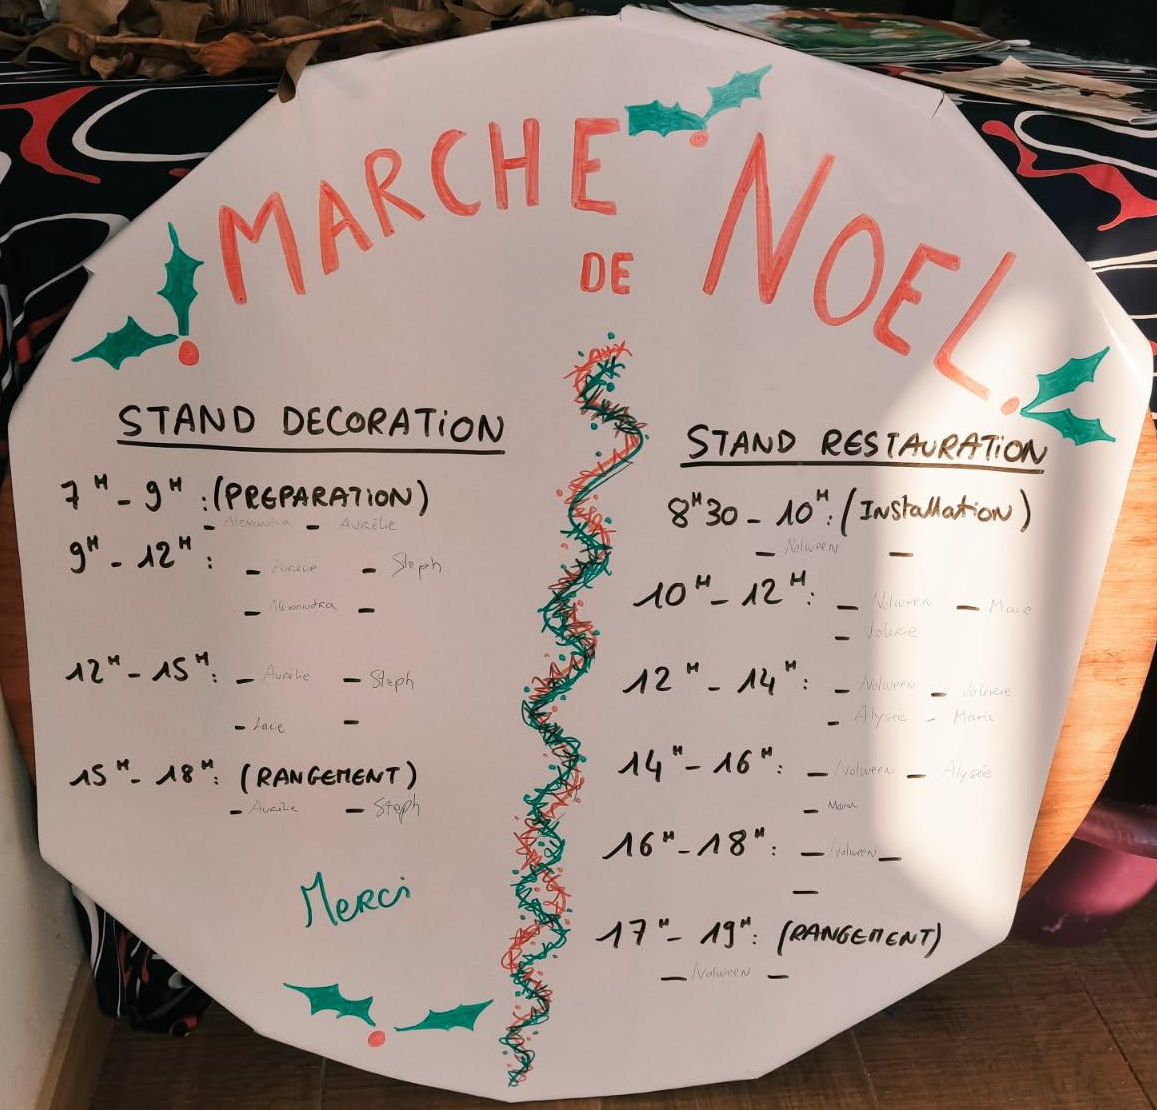 MARCHE
DE
NOEL
STAND DECORATiON
7H - 9H : (PREPARATION)
- Alexandra - Aurélie
9H - 12H : - Aurélie - Steph
- Alexandra -
12H - 15H : - Aurélie - Steph
- Lucie -
15H - 18H : (RANGEMENT)
- Aurélie - Steph
Merci
STAND RESTAURATiON
8H30 - 10H : (InstallAtion)
- Nolween -
10H - 12H : - Nolween - Marie
- Valérie
12H - 14H : - Nolween - Valérie
- Alysée - Marie
14H - 16H : - Nolween - Alysée
-
16H - 18H : - Nolween -
-
17H - 19H : (RANGEMENT)
- Nolween -